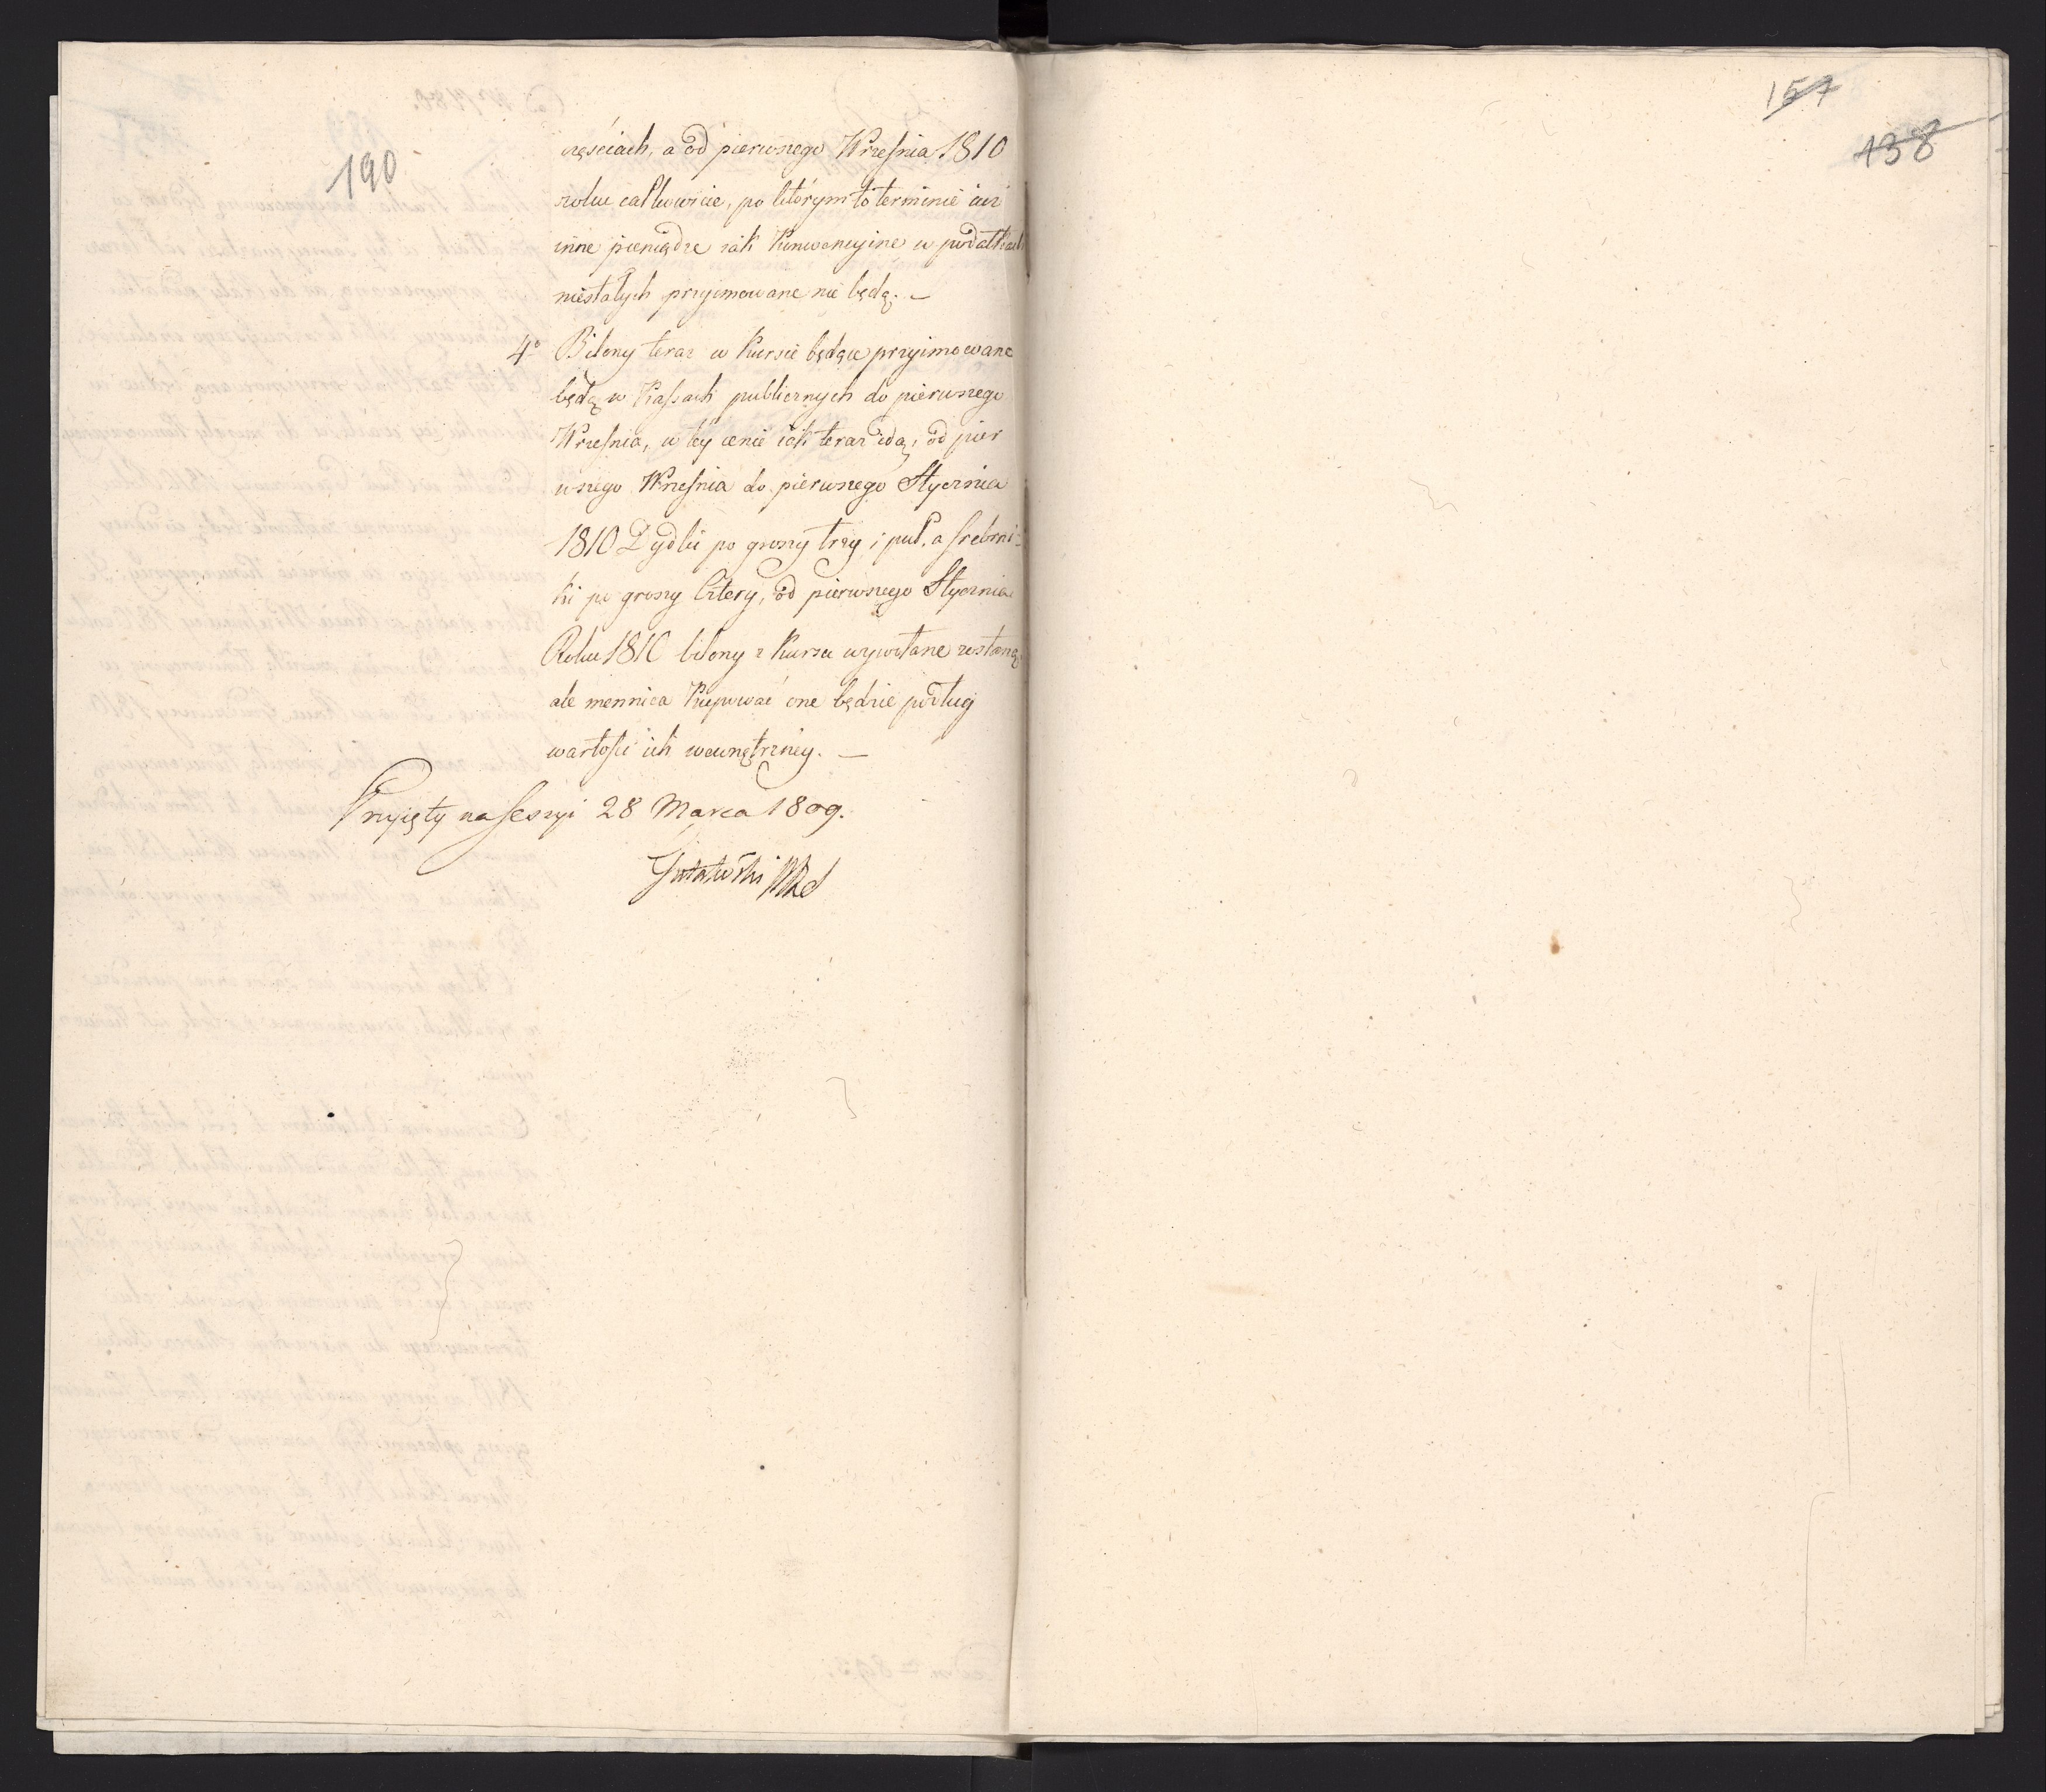 190
częściach, a od pierwszego Wrzesnia 1810
roku całkowicie, po którym to terminie iuż
inne pieniądze iak Konwencyine w podatkach
niestałych przyimowane nie będą. —
4° Bilony teraz w kursie będące przyimowane
będą w Kassach publicznych do pierwszego
Wrzesnia, w tey cenie iak teraz idą, od pier
wszego Wrzesnia do pierwszego Stycznia
1810 Dydki po groszy trzy i puł, a srebrni-
ki po groszy Cztery, od pierwszego Stycznia
Roku 1810 bilony z kursu wywołane zostaną
ale mennica kupować one będzie podług
wartości ich wewnętrzney. —
Przyięty na Sessyi 28 Marca 1809.
157
138